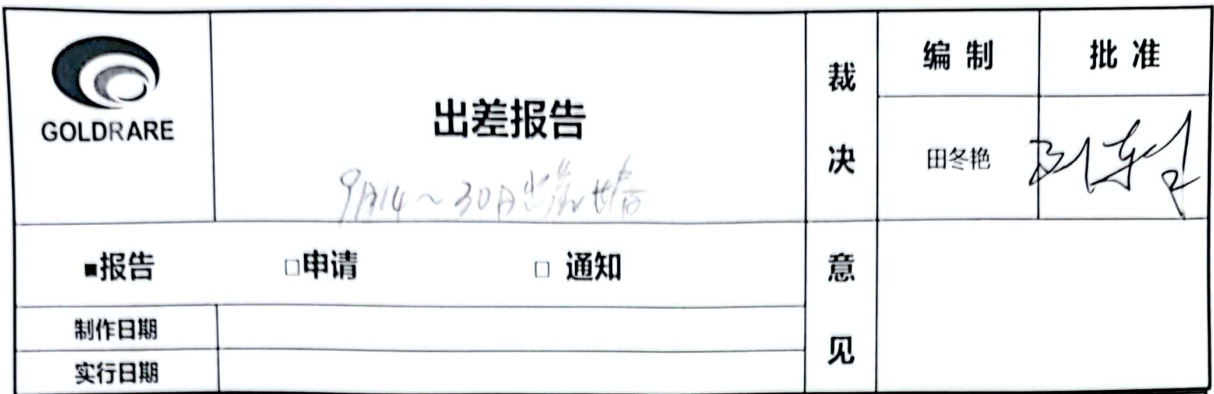 GOLDRARE
出差报告
9月14～30日出差报告
裁决意见
编制
批准
田冬艳
■报告 □申请 □ 通知
制作日期
实行日期